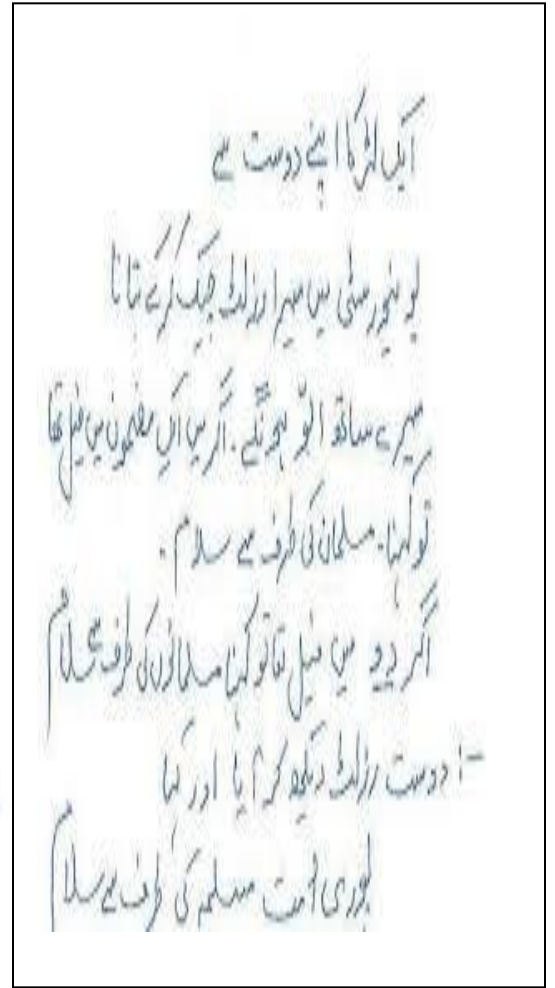 ایک لڑکا اپنے دوست سے
یونیورسٹی میں میرا رزلٹ چیک کرکے بتانا
میرے ساتھ ابّو ہونگے۔ اگر میں ایک مضمون میں فیل تھا
تو کہنا۔ مسلمان کی طرف سے سلام۔
اگر دو میں فیل تھا تو کہنا مسلمانوں کی طرف سے سلام
:- دوست رزلٹ دیکھ کر آیا اور کہا
پوری امت مسلمہ کی طرف سے سلام